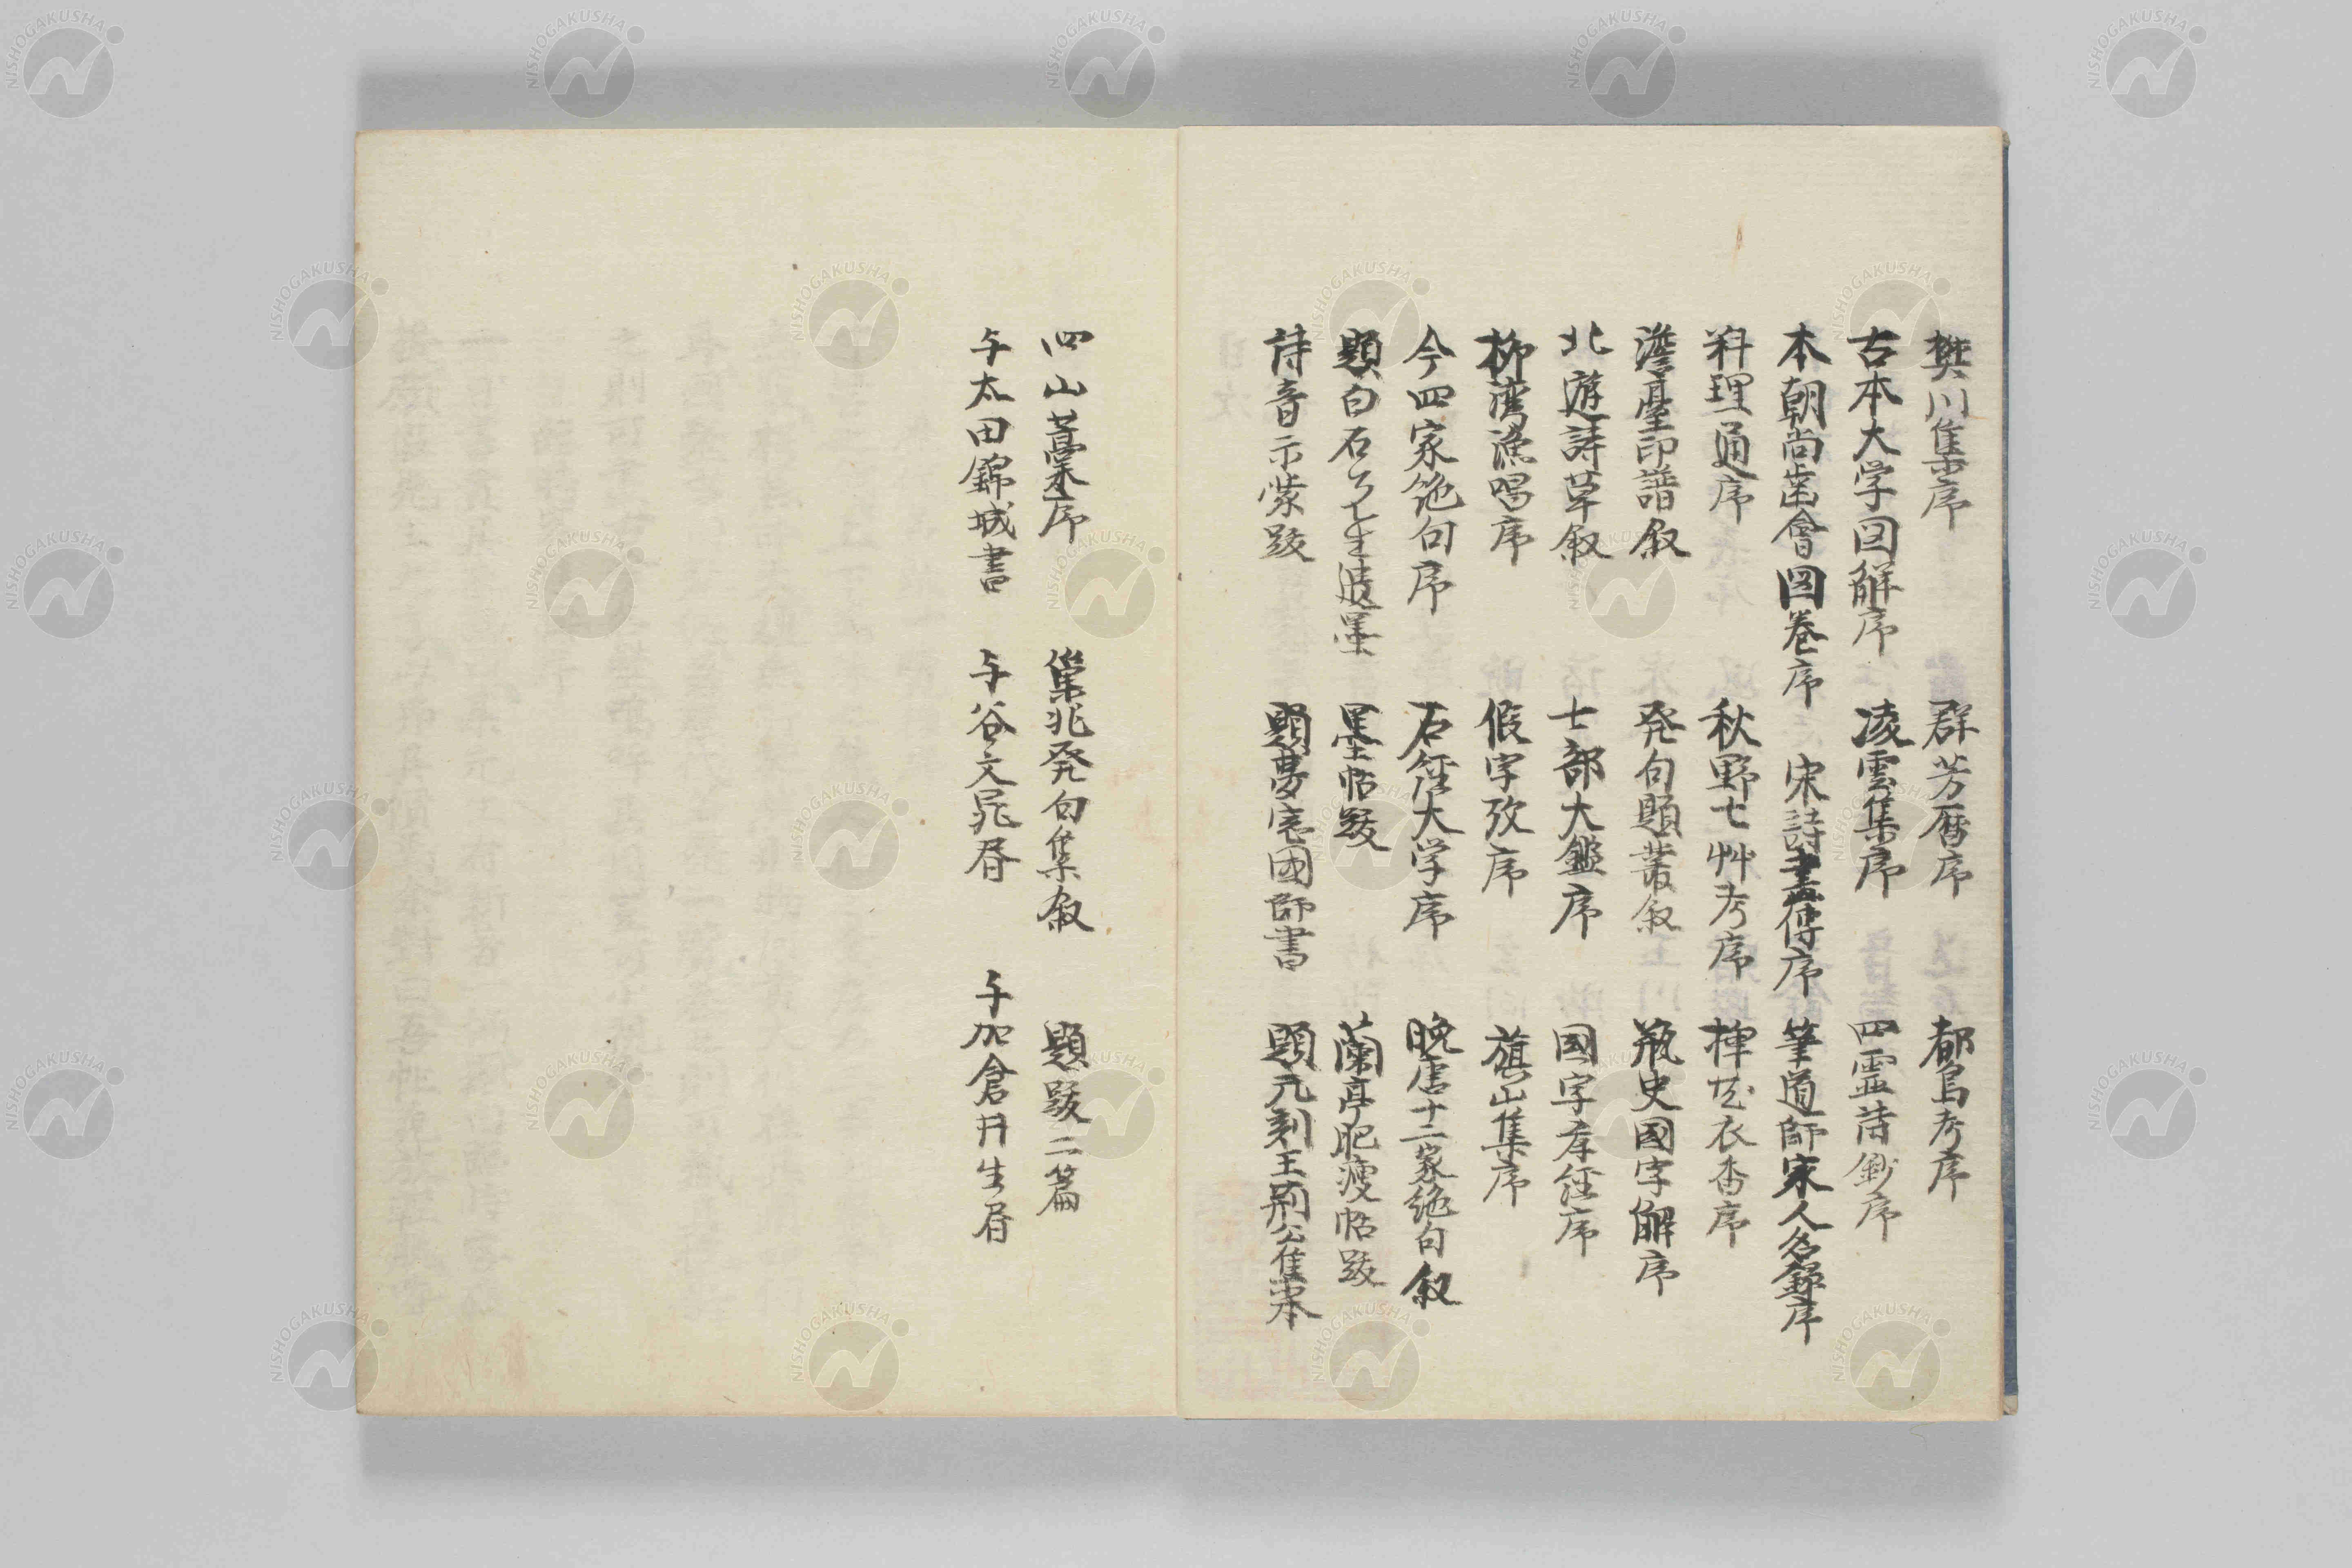 樊川集序　群芳暦序　都鳥考序
古本大学図解序　凌雲集序　四霊詩鈔序
本朝尚歯會図巻序　宋詩畫傳序　筆道師家人名錄序
料理通序　秋野七艸考序　揮花衣香序
澹臺印譜叙　発句題叢叙　瓶史國字解序
北遊詩草叙　士部大鑑序　國字孝經序
柳湾漁唱序　假字攷序　旗山集序
今四家絶句序　石經大学序　晩唐十二家絶句叙
題白石先生遺墨　墨帖跋　蘭亭肥瘦帖跋
詩音示蒙跋　題夢窓國師書　題元刻王荊公集本
四山藁序　巢兆発句集叙　題跋二篇
与太田錦城書　与谷文晁書　与加倉井生書